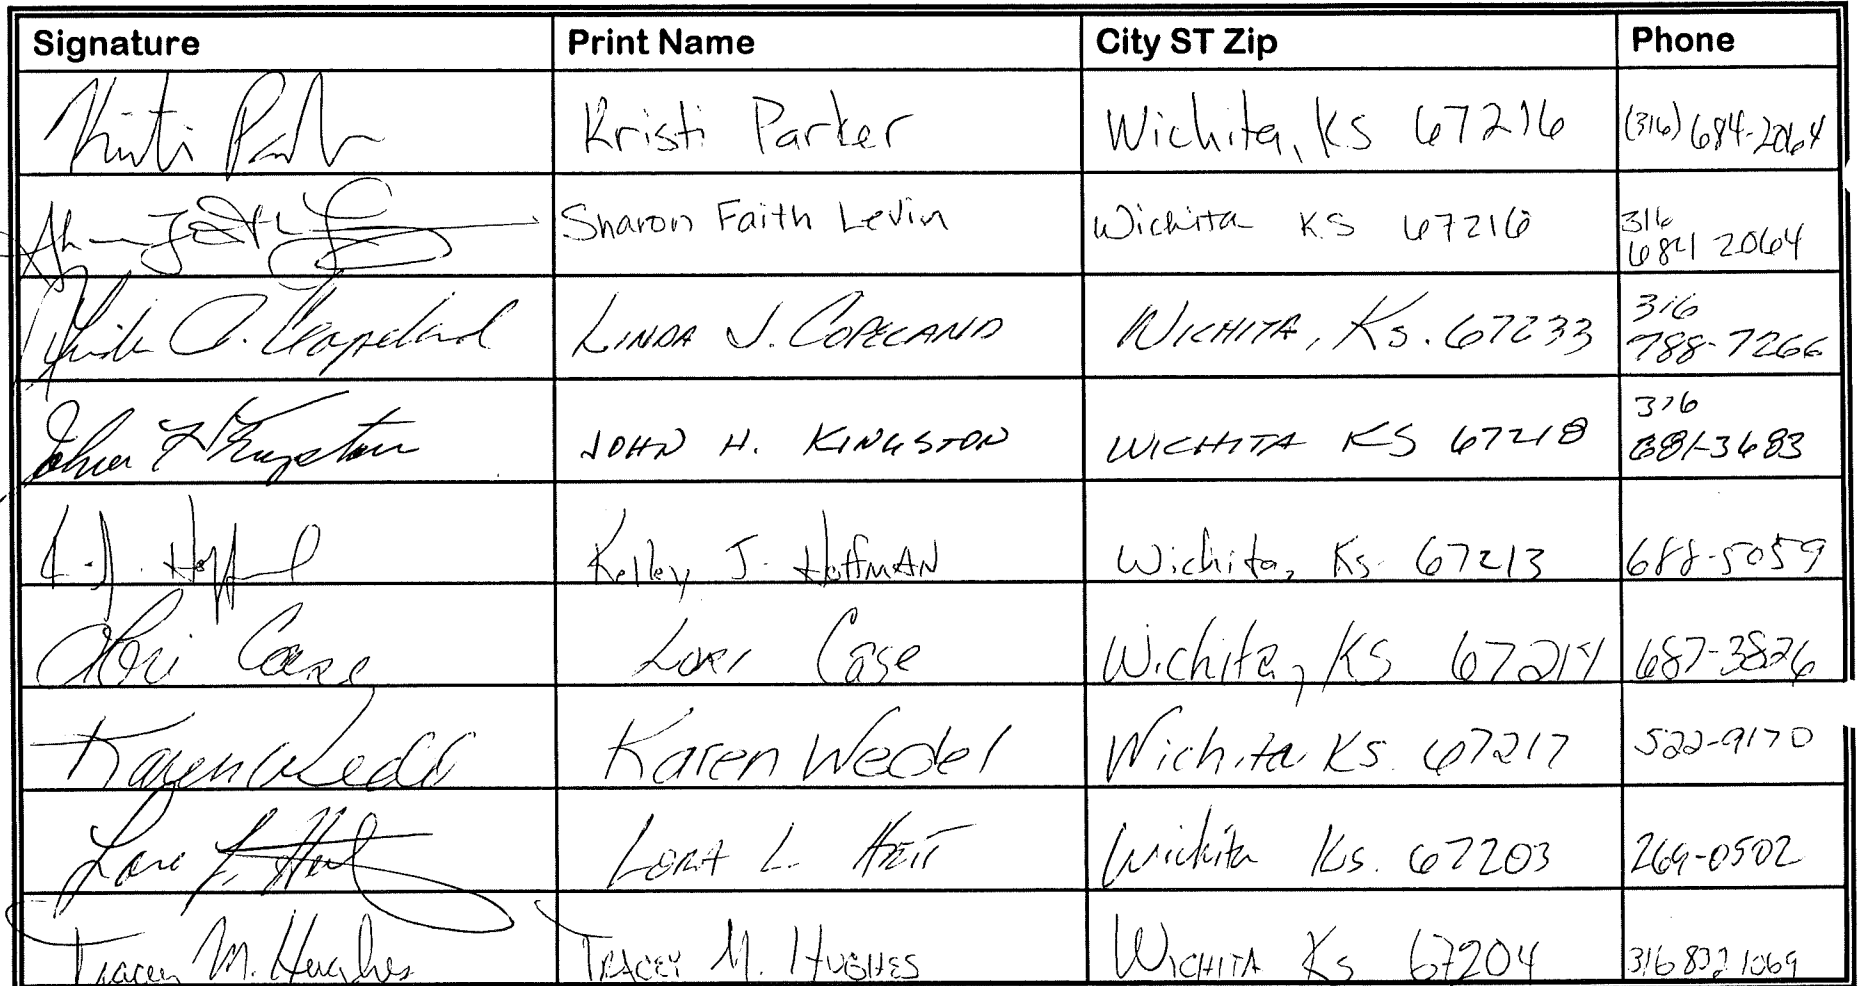 Signature Print Name City ST Zip Phone
Kristi Parker Wichita, KS 67216 (316) 684-2064
Sharon Faith Levin Wichita KS 67216 316 684 2064
Linda J. Copeland LINDA J. COPELAND WICHITA, Ks. 67233 316 788-7266
John H Kingston JOHN H. KINGSTON WICHITA KS 67218 316 681-3683
K.J. Hoffman Kelley J. HoffmAN Wichita, Ks. 67213 688-5059
Lori Case Lori Case Wichita, KS 67214 687-3826
Karen Wedel Karen Wedel Wichita Ks. 67217 522-9170
LORA L. Wichita Ks. 67203 269-0502
Tracey M. Hughes TRACEY M. HUGHES WICHITA Ks 67204 316 832 1069